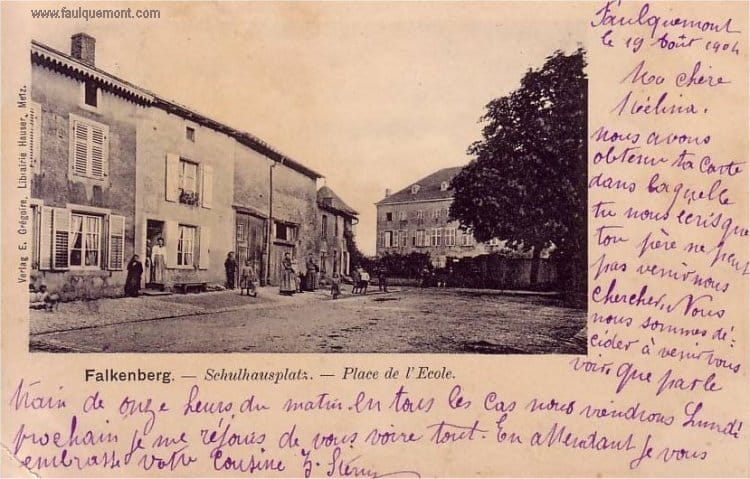 www.faulquemont.com
Verlag E. Grégoire, Librairie Hauser, Metz.
Falkenberg. — Schulhausplatz. — Place de l'Ecole.
Faulquemont
le 19 Août 1904
Ma chère
nous avons
obtenu ta carte
dans laquelle
tu nous ecris que
ton père ne peut
pas venir nous
chercher. Nous
nous sommes dé-
cider à venir vous
voir que par le
train de onze heurs du matin. en tous les cas nous viendrons Lundi
prochain je me réjouis de vous voire tout. En attendant je vous
embrasse votre Cousine